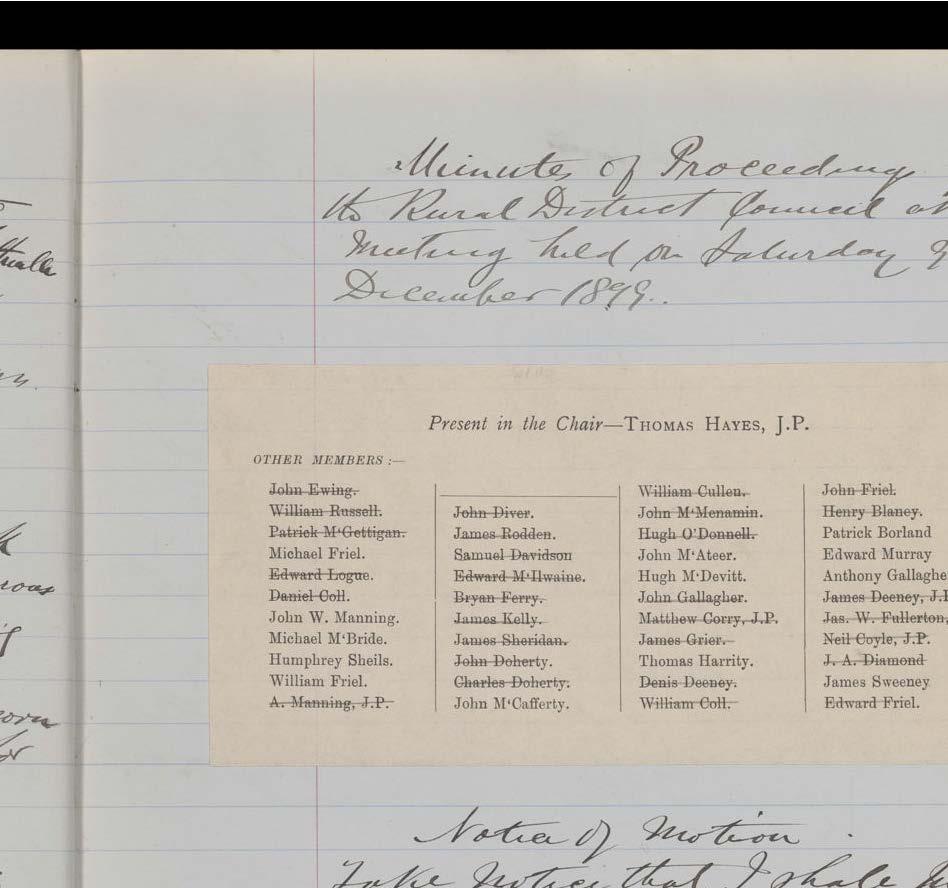 Minutes of Proceedings
the Rural District Council at
Meeting held on Saturday 9
December 1899.
Present in the Chair—THOMAS HAYES, J.P.
OTHER MEMBERS :—
John Ewing.
William Russell.
Patrick M'Gettigan.
Michael Friel.
Edward Logue.
Daniel Coll.
John W. Manning.
Michael M'Bride.
Humphrey Sheils.
William Friel.
A. Manning, J.P.
John Diver.
James Rodden.
Samuel Davidson
Edward M'Ilwaine.
Bryan Ferry.
James Kelly.
James Sheridan.
John Doherty.
Charles Doherty.
John M'Cafferty.
William Cullen.
John M'Menamin.
Hugh O'Donnell.
John M'Ateer.
Hugh M'Devitt.
John Gallagher.
Matthew Corry, J.P.
James Grier.
Thomas Harrity.
Denis Deeney.
William Coll.
John Friel.
Henry Blaney.
Patrick Borland
Edward Murray
Anthony Gallaghe
James Deeney, J.P
Jas. W. Fullerton,
Neil Coyle, J.P.
J. A. Diamond
James Sweeney
Edward Friel.
Notice of Motion
Take Notice that I shall